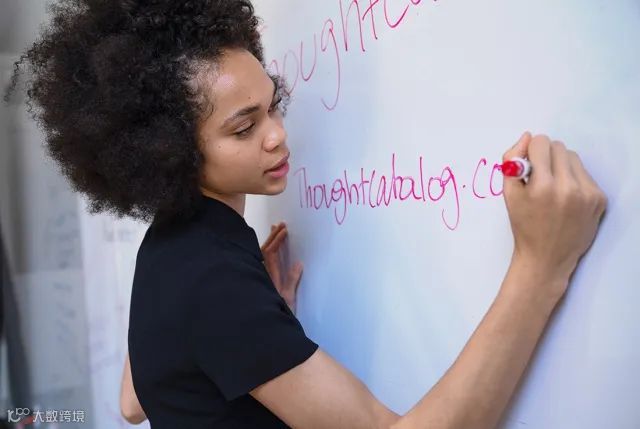 oughtca
Thoughtcatalog.co
大数跨境